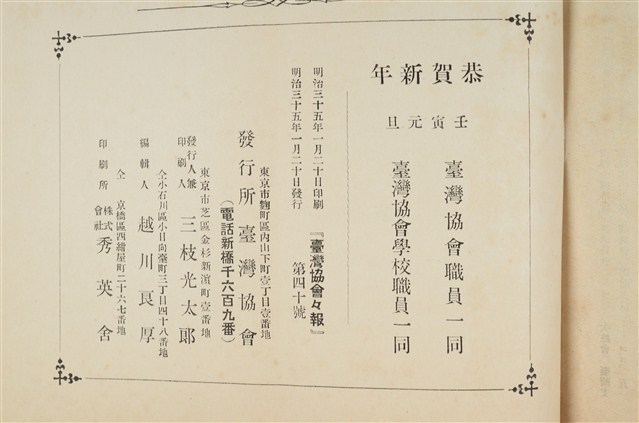 恭賀新年
壬寅元旦
臺灣協會職員一同
臺灣協會學校職員一同
『臺灣協會々報』
第四十號
明治三十五年一月二十日印刷
明治三十五年一月二十日發行
東京市麴町區內山下町壹丁目壹番地
發行所 臺灣協會
(電話新橋千六百九番)
東京市芝區金杉新濵町壹番地
發行人兼
印刷人 三枝光太郎
仝小石川區小日向臺町三丁目四十八番地
編輯人 越川良厚
仝 京橋區西紺屋町二十六七番地
印刷所 株式會社 秀英舍